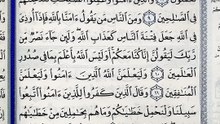 فِى ٱلصَّـٰلِحِينَ ٩ وَمِنَ ٱلنَّاسِ مَن يَقُولُ ءَامَنَّا بِٱللَّهِ فَإِذَآ أُوذِىَ
فِى ٱللَّهِ جَعَلَ فِتْنَةَ ٱلنَّاسِ كَعَذَابِ ٱللَّهِ وَلَئِن جَآءَ نَصْرٌ مِّن
رَّبِّكَ لَيَقُولُنَّ إِنَّا كُنَّا مَعَكُمْ أَوَلَيْسَ ٱللَّهُ بِأَعْلَمَ بِمَا فِى صُدُورِ
ٱلْعَـٰلَمِينَ ١٠ وَلَيَعْلَمَنَّ ٱللَّهُ ٱلَّذِينَ ءَامَنُوا۟ وَلَيَعْلَمَنَّ
ٱلْمُنَـٰفِقِينَ ١١ وَقَالَ ٱلَّذِينَ كَفَرُوا۟ لِلَّذِينَ ءَامَنُوا۟ ٱتَّبِعُوا۟
سَبِيلَنَا وَلْنَحْمِلْ خَطَـٰيَـٰكُمْ وَمَا هُم بِحَـٰمِلِينَ مِنْ خَطَـٰيَـٰهُم